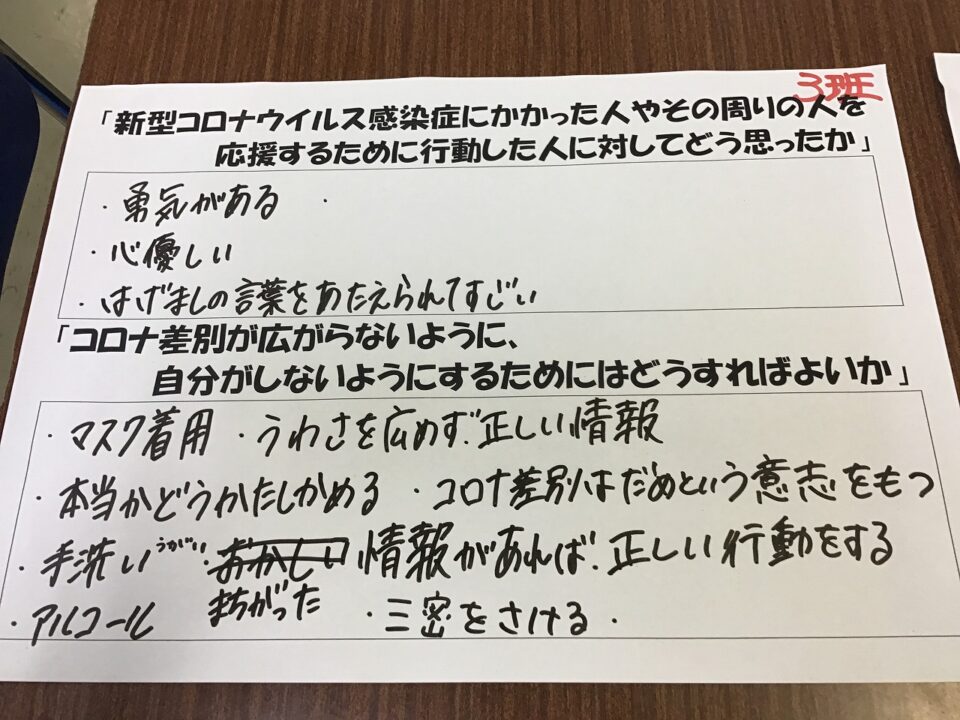 3班
「新型コロナウイルス感染症にかかった人やその周りの人を
応援するために行動した人に対してどう思ったか」
・勇気がある ・
・心優しい
・はげましの言葉をあたえられてすごい
「コロナ差別が広がらないように、
自分がしないようにするためにはどうすればよいか」
・マスク着用 ・うわさを広めず、正しい情報
・本当かどうかたしかめる ・コロナ差別はだめという意志をもつ
・手洗い うがい ・おかしい 情報があれば、正しい行動をする
まちがった
・アルコール ・三密をさける ・